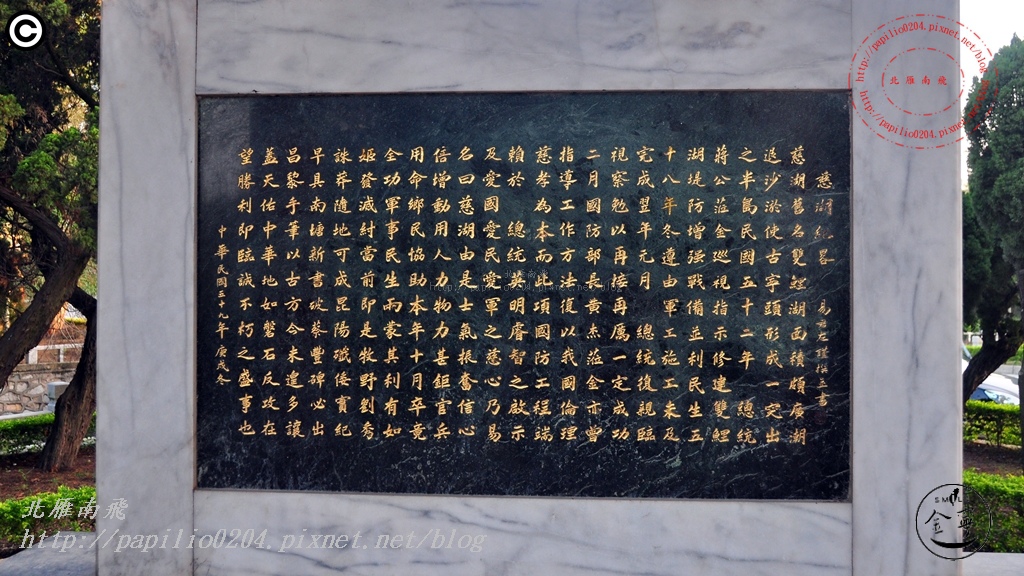 慈湖紀畧　易君左謹撰並書
慈湖舊名雙鯉湖面積頗廣湖
邊沙淤使古寧頭形成一突出
之半島民國五十二年　總統
蔣公蒞金巡視指示修建雙鯉
湖堤防增强戰備並利民生五
十八年冬遵由軍工施工未及
完成翌年元月　總統復親臨
視察勉以再接再厲一定成功
二月國防部長黃杰蒞金亦曾
指導工作方法復以我國倫理
慈孝為本而此項國防工程端
賴於　總統英明睿智之啟示
及愛國愛民愛軍之慈心乃易
名曰慈湖由是士氣振奮信心
信增動用人力物力甚鉅官兵
用命鄉民協助本年十月卒竟
全功軍事民生兩蒙其利有如
姬發滅紂當前即是牧野劉秀
誅莽隨地可成昆陽殲倭寶紀
早具南塘新書破蔡豐碑必出
昌黎手筆以古方今未遑多讓
蓋天佑中華地如磐石反攻在
望勝利即臨誠不朽之盛事也
中華民國五十九年庚戌冬
北雁南飛
http://papilio0204.pixnet.net/blog
http://papilio0204.pixnet.net/
北雁南飛
http://papilio0204.pixnet.net/
SMILE
©